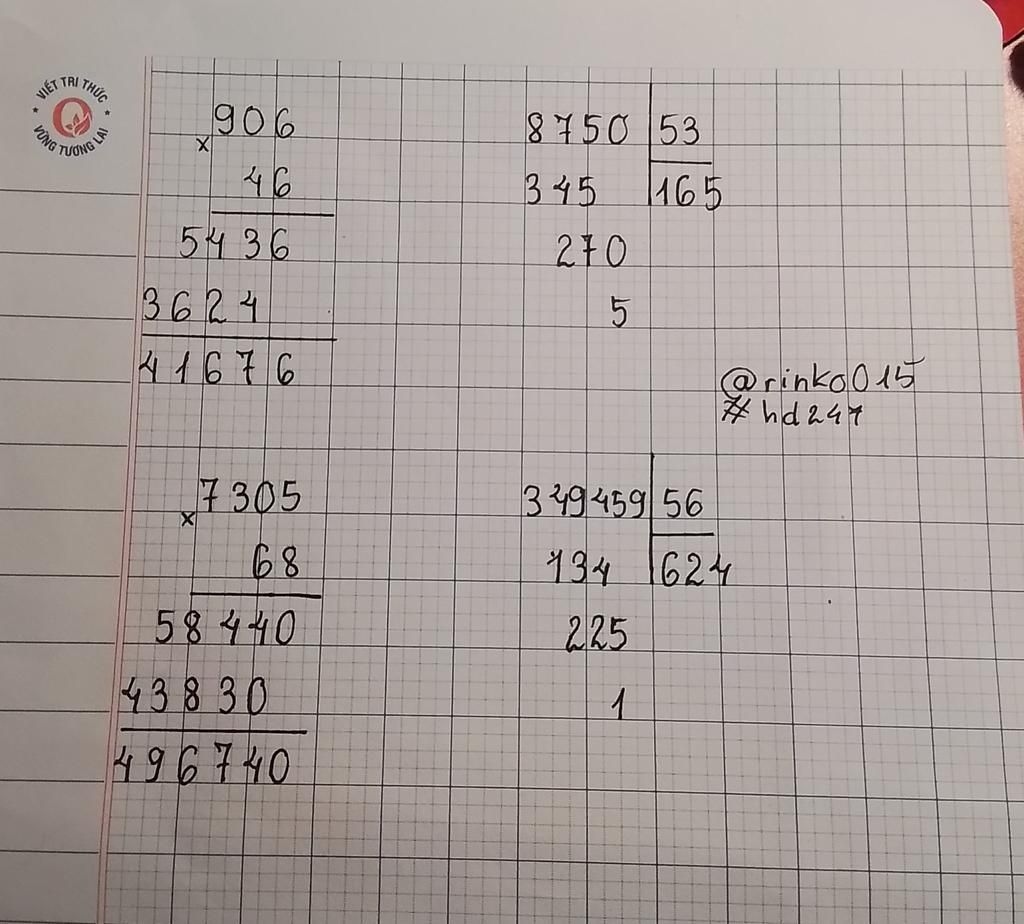 VIẾT TRI THỨC
VỮNG TƯƠNG LAI
906
x
46
5436
3624
41676
8750 53
345 165
270
5
@rinko015
#hd247
7305
x
68
58440
43830
496740
349459 56
134 624
225
1